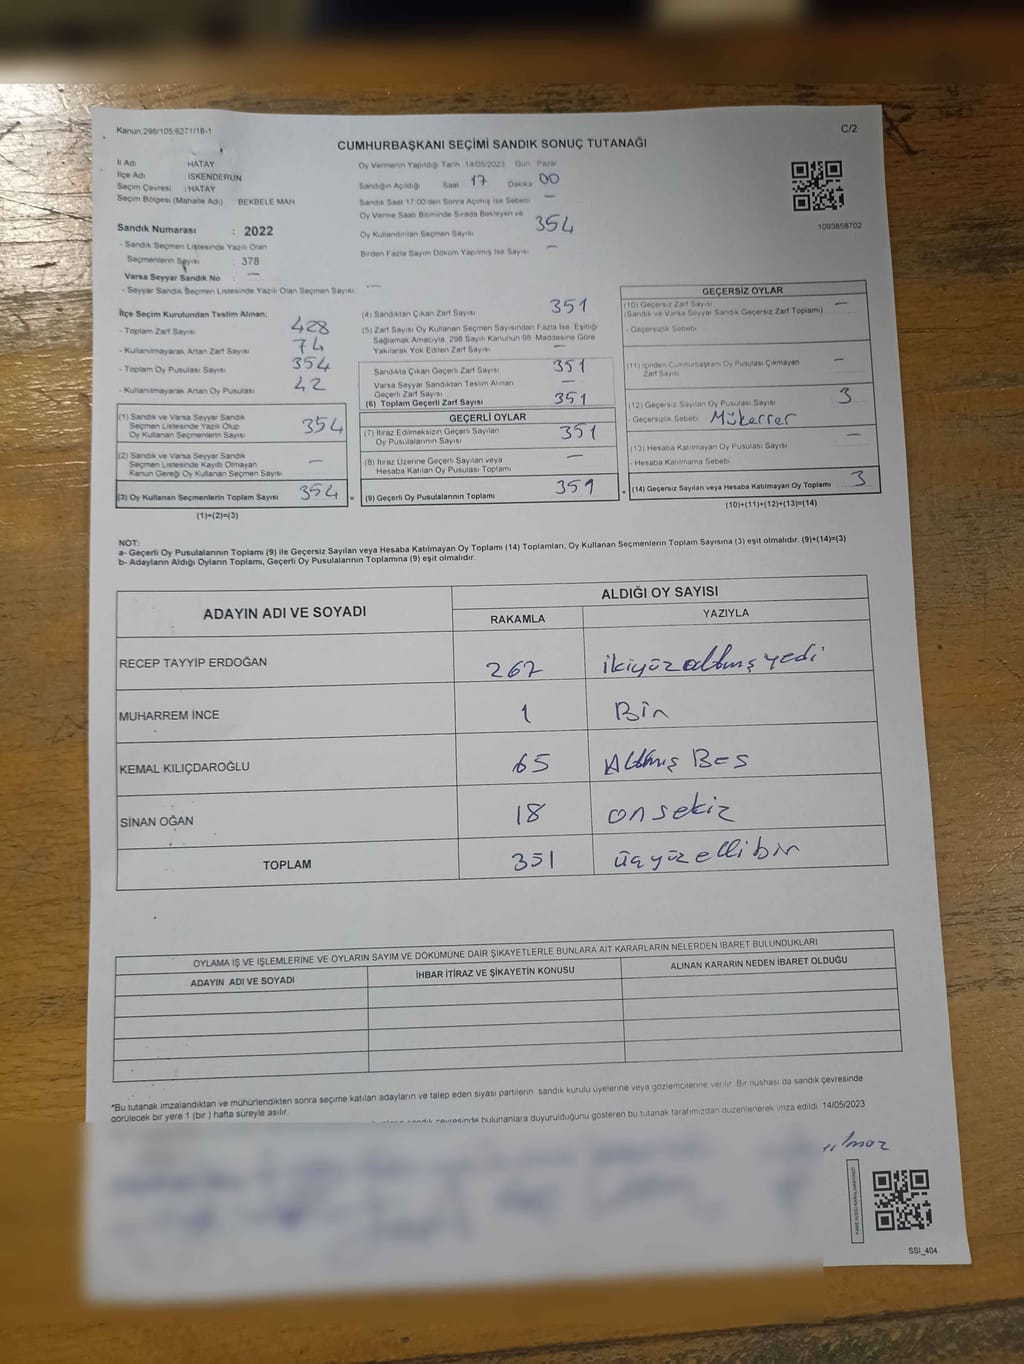 Kanun,298/105,6271/18-1
C/2
CUMHURBAŞKANI SEÇİMİ SANDIK SONUÇ TUTANAĞI
İl Adı HATAY
İlçe Adı İSKENDERUN
Seçim Çevresi : HATAY
Seçim Bölgesi (Mahalle Adı) BEKBELE MAH
Sandık Numarası : 2022
- Sandık Seçmen Listesinde Yazılı Olan
Seçmenlerin Sayısı : 378
Varsa Seyyar Sandık No : —
- Seyyar Sandık Seçmen Listesinde Yazılı Olan Seçmen Sayısı : —
Oy Vermenin Yapıldığı Tarih 14/05/2023 Gün Pazar
Sandığın Açıldığı Saat 17 Dakika 00
Sandık Saat 17:00'den Sonra Açılmış İse Sebebi —
Oy Verme Saati Bitiminde Sırada Bekleyen ve
Oy Kullandırılan Seçmen Sayısı 354
Birden Fazla Sayım Döküm Yapılmış İse Sayısı —
1093858702
İlçe Seçim Kurulundan Teslim Alınan;
- Toplam Zarf Sayısı 428
- Kullanılmayarak Artan Zarf Sayısı 74
- Toplam Oy Pusulası Sayısı 354
- Kullanılmayarak Artan Oy Pusulası 42
(1) Sandık ve Varsa Seyyar Sandık
Seçmen Listesinde Yazılı Olup
Oy Kullanan Seçmenlerin Sayısı 354
(2) Sandık ve Varsa Seyyar Sandık
Seçmen Listesinde Kayıtlı Olmayan
Kanun Gereği Oy Kullanan Seçmen Sayısı —
(3) Oy Kullanan Seçmenlerin Toplam Sayısı 354 =
(1)+(2)=(3)
(4) Sandıktan Çıkan Zarf Sayısı 351
(5) Zarf Sayısı Oy Kullanan Seçmen Sayısından Fazla İse, Eşitliği
Sağlamak Amacıyla, 298 Sayılı Kanunun 98. Maddesine Göre
Yakılarak Yok Edilen Zarf Sayısı —
Sandıkta Çıkan Geçerli Zarf Sayısı 351
Varsa Seyyar Sandıktan Teslim Alınan
Geçerli Zarf Sayısı —
(6) Toplam Geçerli Zarf Sayısı 351
GEÇERLİ OYLAR
(7) İtiraz Edilmeksizin Geçerli Sayılan
Oy Pusulalarının Sayısı 351
(8) İtiraz Üzerine Geçerli Sayılan veya
Hesaba Katılan Oy Pusulası Toplamı —
(9) Geçerli Oy Pusulalarının Toplamı 351 +
GEÇERSİZ OYLAR
(10) Geçersiz Zarf Sayısı —
(Sandık ve Varsa Seyyar Sandık Geçersiz Zarf Toplamı)
- Geçersizlik Sebebi
(11) İçinden Cumhurbaşkanı Oy Pusulası Çıkmayan
Zarf Sayısı —
(12) Geçersiz Sayılan Oy Pusulası Sayısı 3
- Geçersizlik Sebebi Mükerrer
(13) Hesaba Katılmayan Oy Pusulası Sayısı —
- Hesaba Katılmama Sebebi
(14) Geçersiz Sayılan veya Hesaba Katılmayan Oy Toplamı 3
(10)+(11)+(12)+(13)=(14)
NOT:
a- Geçerli Oy Pusulalarının Toplamı (9) ile Geçersiz Sayılan veya Hesaba Katılmayan Oy Toplamı (14) Toplamları, Oy Kullanan Seçmenlerin Toplam Sayısına (3) eşit olmalıdır. (9)+(14)=(3)
b- Adayların Aldığı Oyların Toplamı, Geçerli Oy Pusulalarının Toplamına (9) eşit olmalıdır.
ADAYIN ADI VE SOYADI
ALDIĞI OY SAYISI
RAKAMLA YAZIYLA
RECEP TAYYİP ERDOĞAN 267 ikiyüzaltmışyedi
MUHARREM İNCE 1 Bir
KEMAL KILIÇDAROĞLU 65 Altmış Beş
SİNAN OĞAN 18 onsekiz
TOPLAM 351 üçyüzellibir
OYLAMA İŞ VE İŞLEMLERİNE VE OYLARIN SAYIM VE DÖKÜMÜNE DAİR ŞİKAYETLERLE BUNLARA AİT KARARLARIN NELERDEN İBARET BULUNDUKLARI
ADAYIN ADI VE SOYADI İHBAR İTİRAZ VE ŞİKAYETİN KONUSU ALINAN KARARIN NEDEN İBARET OLDUĞU
*Bu tutanak imzalandıktan ve mühürlendikten sonra seçime katılan adayların ve talep eden siyasi partilerin sandık kurulu üyelerine veya gözlemcilerine verilir. Bir nüshası da sandık çevresinde
görülecek bir yere 1 (bir ) hafta süreyle asılır.
sandık çevresinde bulunanlara duyurulduğunu gösteren bu tutanak tarafımızdan düzenlenerek imza edildi. 14/05/2023
SSI_404